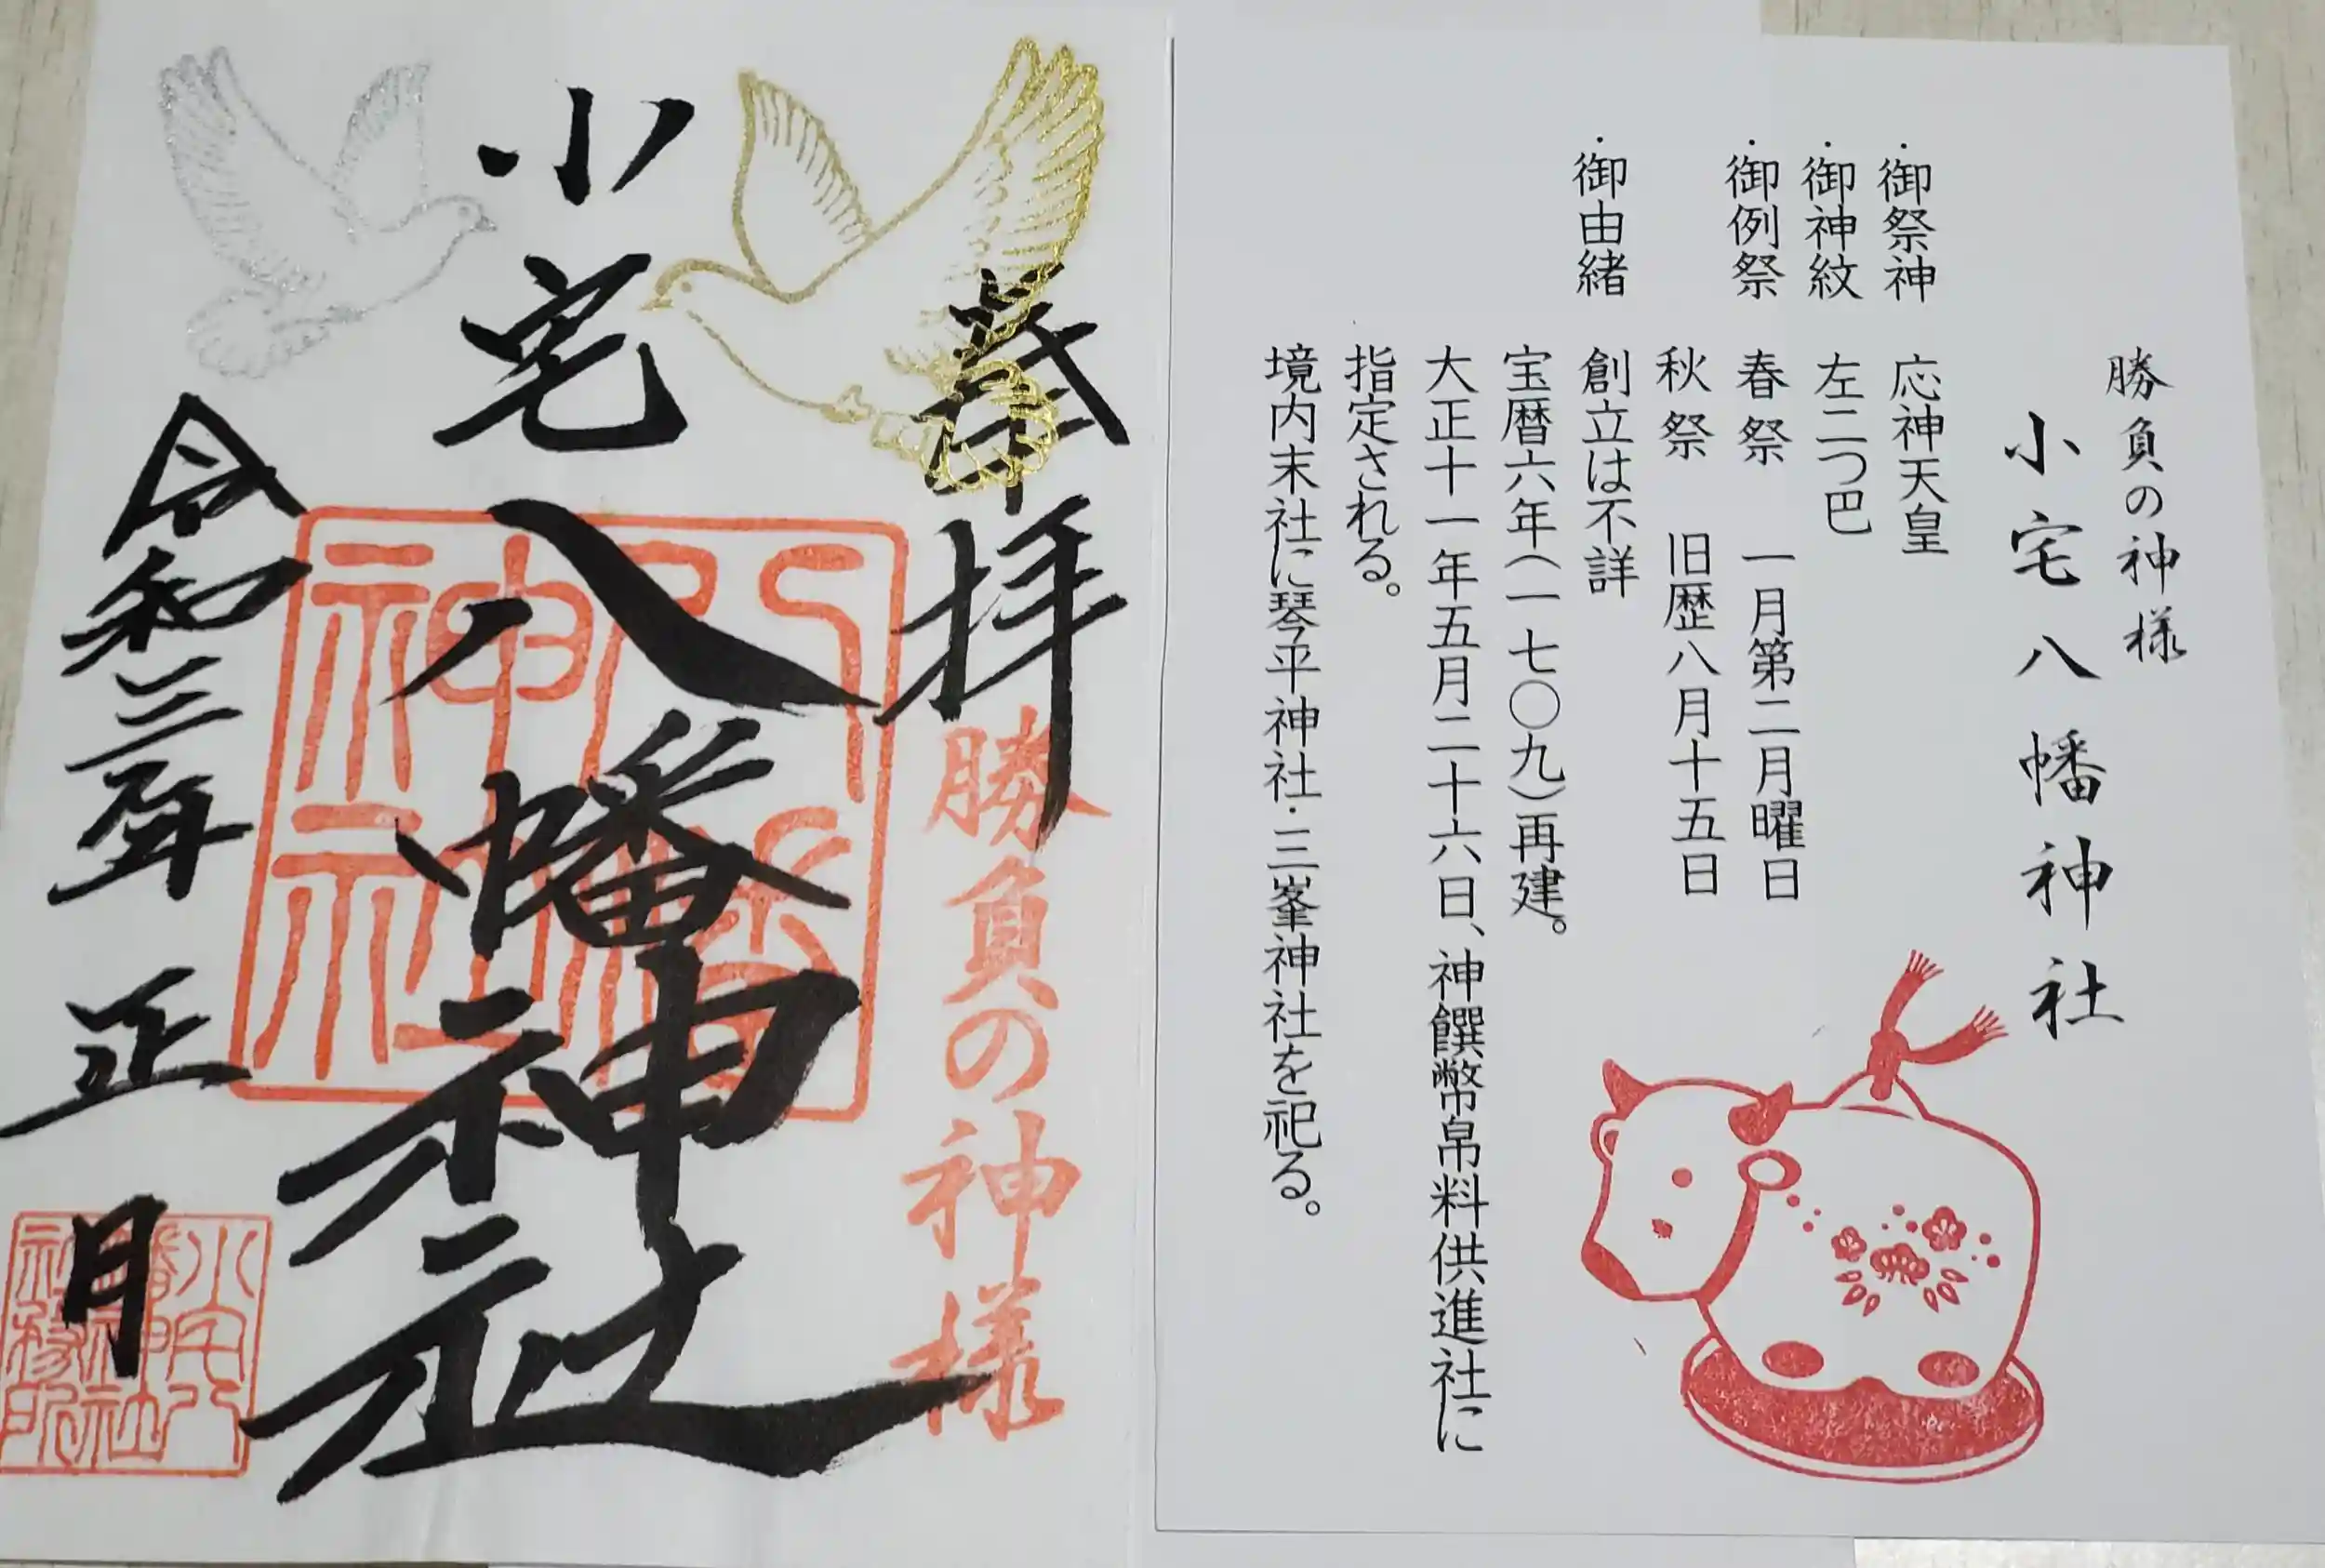 勝負の神様
小宅八幡神社
・御祭神 応神天皇
・御神紋 左二つ巴
・御例祭 春祭 一月第二月曜日
秋祭 旧歴八月十五日
・御由緒 創立は不詳
宝暦六年(一七〇九)再建。
大正十一年五月二十六日、神饌幣帛料供進社に
指定される。
境内末社に琴平神社・三峯神社を祀る。
奉拝
勝負の神様
小宅八幡神社
八幡
神社
令和三年正月
小宅八
幡神社
社務所